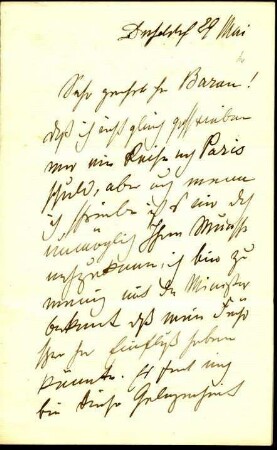 Düsseldorf 29 Mai
Sehr geehrter Hr Baron!
daß ich nicht gleich geschrieben
war eine Reise nach Paris
schuld, aber auch wenn
ich schreibe ist es mir doch
unmöglich Ihrem Wunsche
nachzukommen, ich bin zu
wenig mit dem Minister
bekannt daß mein
Einfluß haben
könnte. Es freut mich
bei dieser Gelegenheit